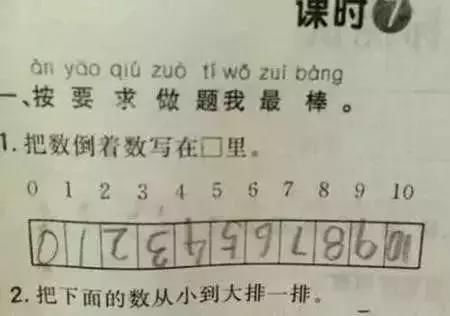 课时7
àn yāo qiú zuò tí wǒ zuì bàng
一、按要求做题我最棒。
1. 把数倒着数写在□里。
0 1 2 3 4 5 6 7 8 9 10
0 1 2 3 4 5 6 7 8 9 10
2. 把下面的数从小到大排一排。